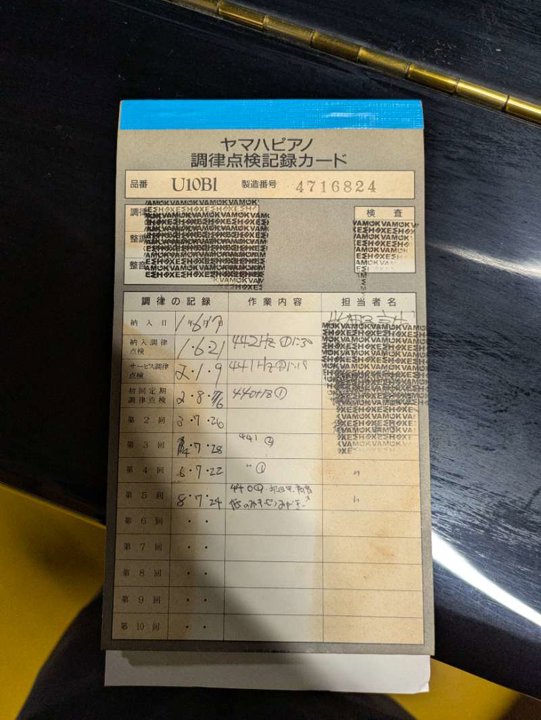 ヤマハピアノ
調律点検記録カード
品番 U10Bl 製造番号 4716824
調律 検査
整調
整音
調律の記録 作業内容 担当者名
納入日 1・6・7
納入調律点検 1・6・21 442Hz
サービス調律点検 2・1・9 441Hz
初回定期調律点検 2・8・ 440Hz ①
第2回 3・7・26
第3回 4・7・28 441
第4回 6・7・22 〃 ① 〃
第5回 8・7・24 440 〃
第6回 ・・
第7回 ・・
第8回 ・・
第9回 ・・
第10回 ・・